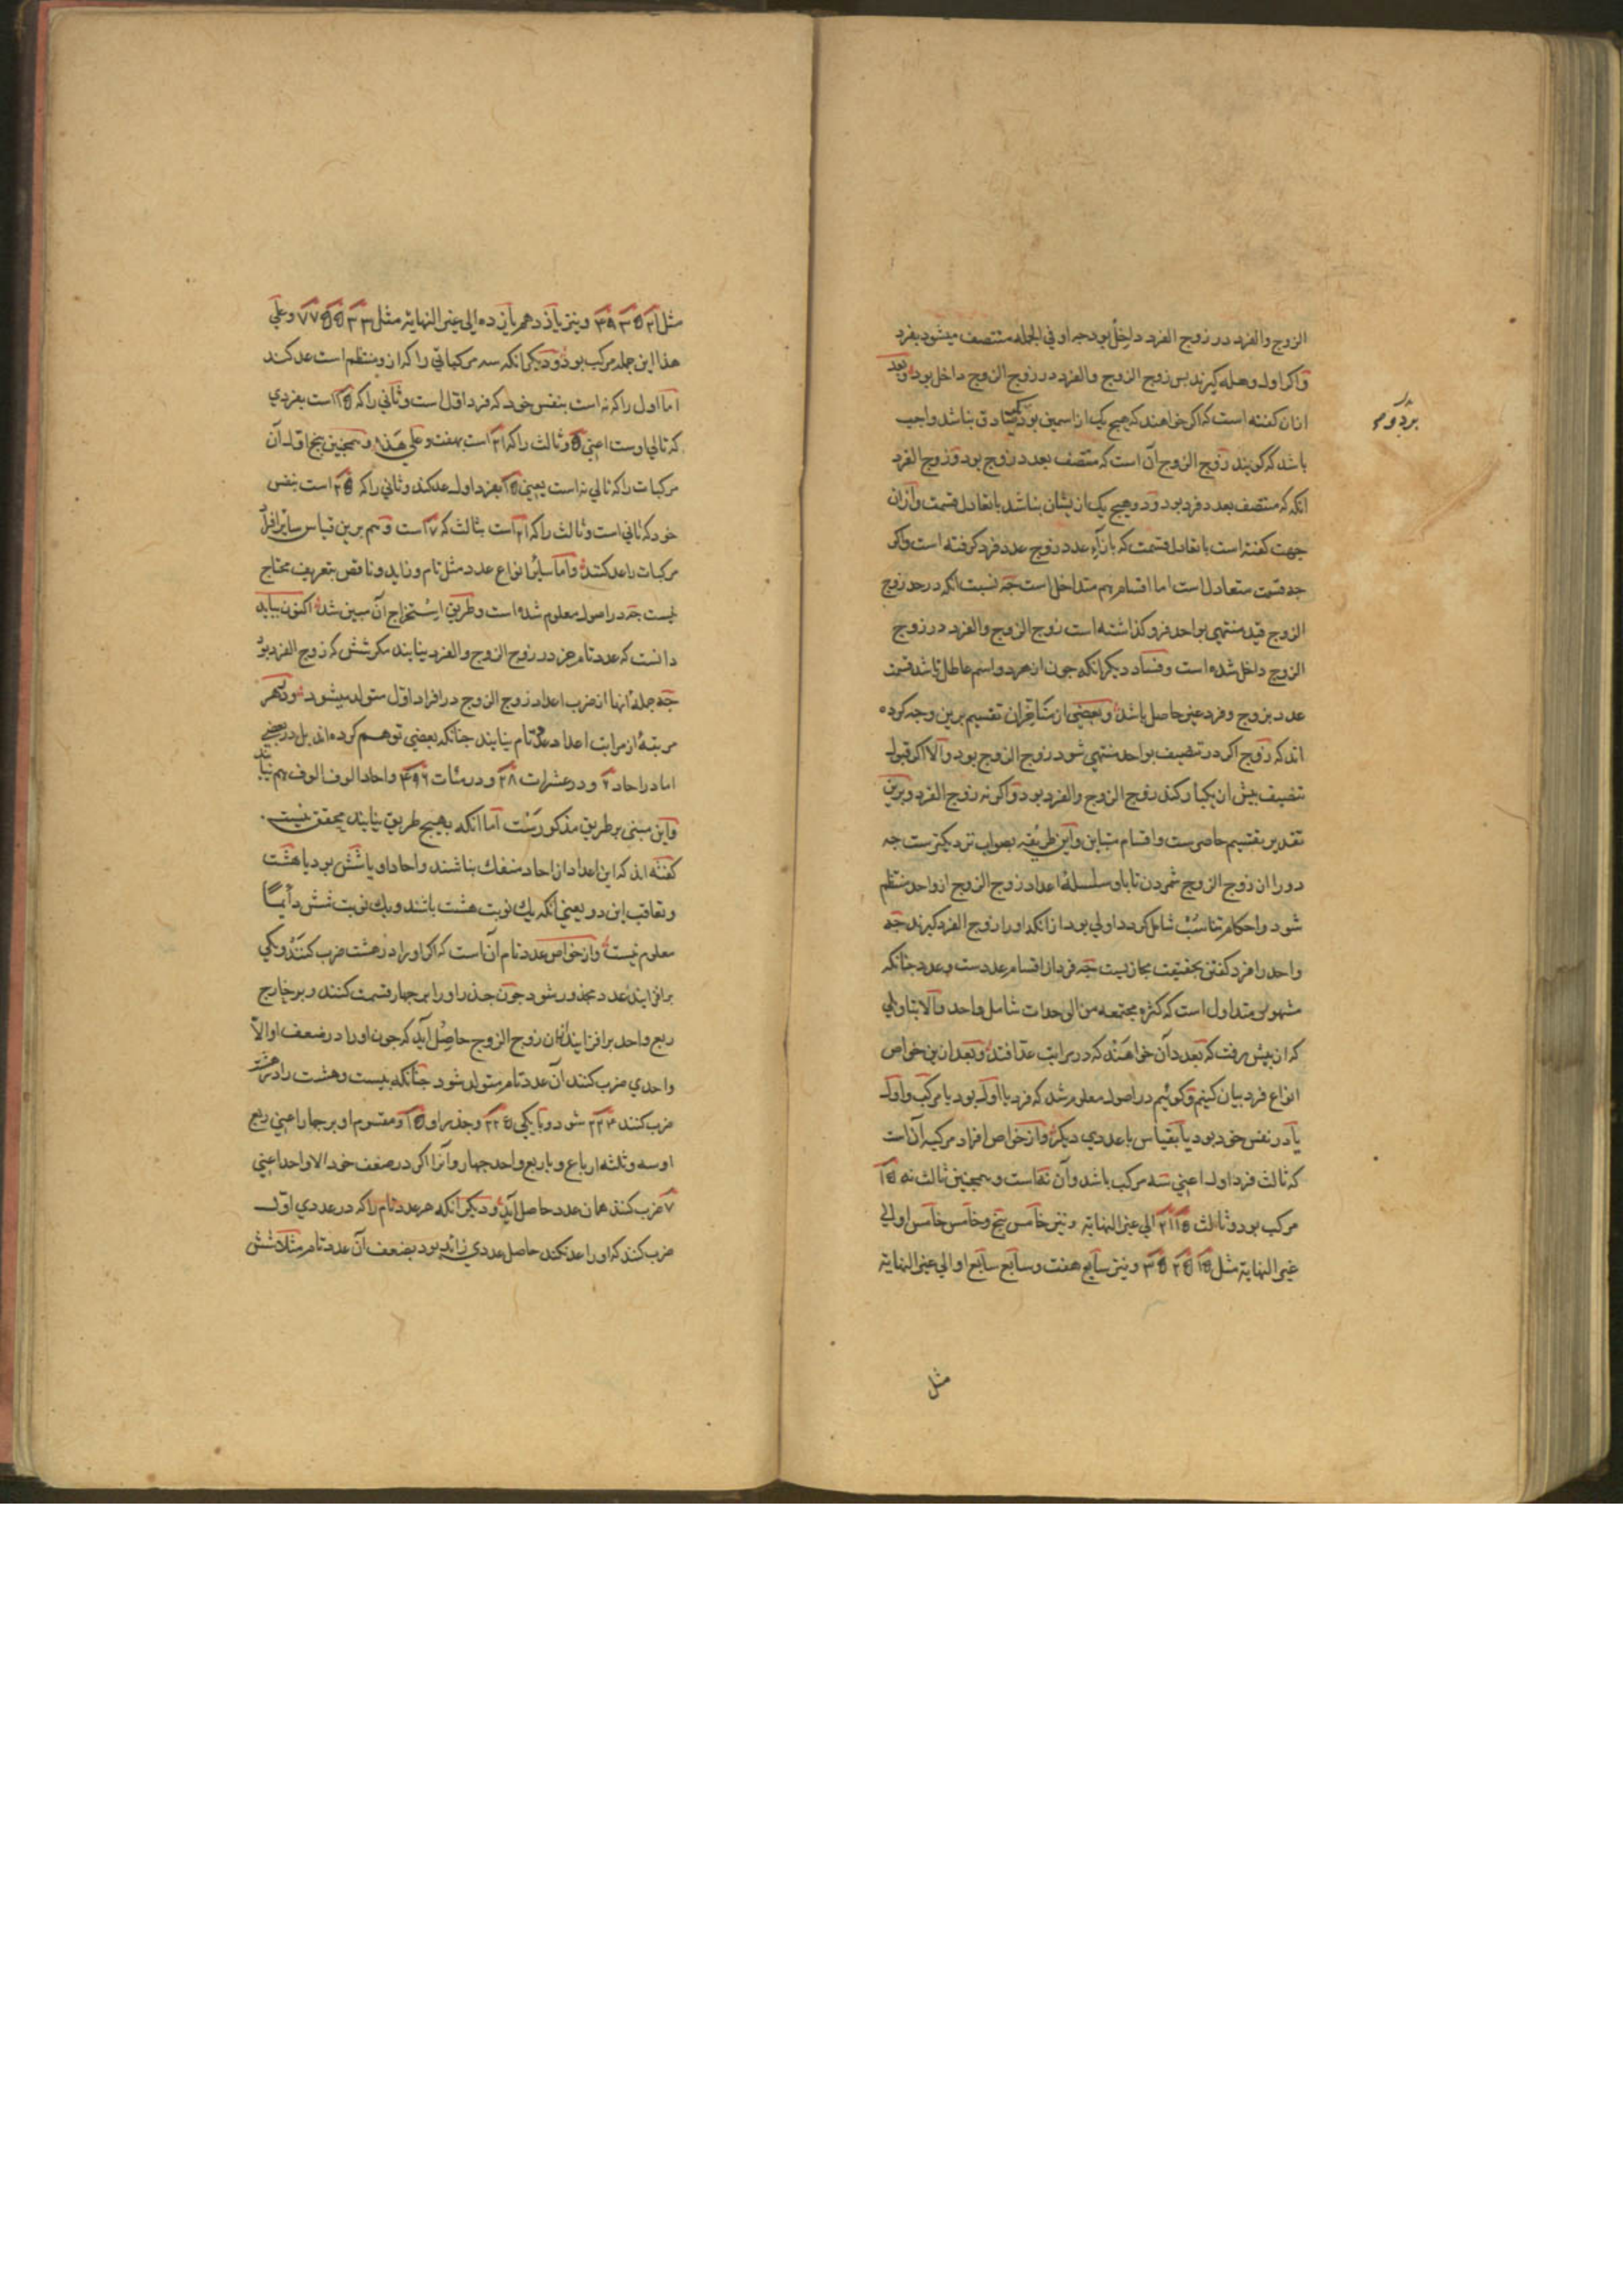 الزوج والفرد در زوج الفرد داخل بود چه او فی الجمله منتصف میشود بفرد
واکر اول وهله کیرند بس زوج الزوج والفرد در زوج الزوج داخل بود وبعد
ازان کفته است که اکر خواهند که هیچ یک از اسمین بود یکر صادق نباشد واجب
بردوم
باشد که کویند زوج الزوج آن است که منتصف بعدد زوج بود وزوج الفرد
انکه که منتصف بعدد فرد بود ودو هیچ یک ازیشان نباشد با تعادل قسمت وازان
جهت کفته است با تعادل قسمت که بازاء عدد زوج عدد فرد کرفته است واکر
جه قسمت متعادل است اما اقسام هم متداخل است جه نسبت انکه در حد زوج
الزوج قید منتهی بواحد فرو کذاشته است زوج الزوج والفرد در زوج
الزوج داخل شده است وفساد دیکر انکه جون از هر دو اسم عاطل باشد قسمت
عدد بزوج وفرد غیر حاصل باشد وبعضی از متاخران تقسیم برین وجه کرده
اند که زوج اکر در تنصیف بواحد منتهی شود زوج الزوج بود والا اکر قبول
تنصیف بیش از یکبار کند زوج الزوج والفرد بود واکر نه زوج الفرد وبرین
تقدیر تقسیم حاصرست واقسام متباین واین طریقه بصواب نزدیکترست جه
دو را از زوج الزوج شمردن تا باو سلسلهٔ اعداد زوج الزوج از واحد منتظم
شود واحکام تناسب شامل کردد اولی بود از انکه اورا زوج الفرد کیرند جه
واحد را فرد کفتن بحقیقت مجازیست جه فرد از اقسام عددست وعدد جنانکه
مشهور متداول است که کثره مجتمعه من الوحدات شامل واحد والا بتاویلی
که ازبیش رفت که بعدد آن خواهند که در مراتب عد افتد وبعد ازین خواص
انواع فرد بیان کنیم وکوئیم در اصول معلوم شد که فرد یا اول بود یا مرکب واول
یا در نفس خود بود یا بقیاس با عددی دیکر واز خواص افراد مرکبه آنست
که ثالث فرد اول اعنی سه مرکب باشد وآن نه است وهمجنین ثالث نه ۱۵
مرکب بود وثالث ۱۵ ۲۱ الی غیر النهایة ونیز خامس پنج وخامس خامس او الی
غیر النهایة مثل ۱۵ ۲۵ ۳۵ ونیز سابع هفت وسابع سابع او الی غیر النهایة
مثل
مثل ۲۱ ۳۵ ۴۹ ونیز یازدهم یازده الی غیر النهایة مثل ۳۳ ۵۵ ۷۷ وعلی
هذا این جمله مرکب بود ودیکر انکه سه مرکباتی را که ازو منتظم است عد کند
اما اول را که نه است بنفس خود که فرد اول است وثانی را که ۱۵ است بفردی
که تالی اوست اعنی ۵ وثالث را که ۲۱ است بهفت وعلی هذا وهمجنین پنج اول آن
مرکبات را که تالی نه است یعنی ۱۵ بفرد اول عد کند وثانی را که ۲۵ است بنفس
خود که ثانی است وثالث را که ۲۱ است بثالث که ۷ است وهم برین قیاس سایر افراد
مرکبات را عد کنند واما سایر انواع عدد مثل تام وزاید وناقص بتعریف محتاج
نیست جه در اصول معلوم شده است وطریق استخراج آن مبین شده اکنون بباید
دانست که عدد تام جز در زوج الزوج والفرد نیابند مکر شش که زوج الفرد بود
جه جملهٔ انها از ضرب اعداد زوج الزوج در افراد اول متولد میشود ودر هر
مرتبهٔ از مراتب اعداد عدد تام نیابند جنانکه بعضی توهم کرده اند بل در بعضی
اما در احاد ۶ ودر عشرات ۲۸ ودر مئات ۴۹۶ واحاد الوف الوف هم نیابند
واین مبنی بر طریق مذکورست اما انکه بهیچ طریق نیابند محقق نیست
کفته اند که این اعداد از احاد منفک نباشند واحاد او یا شش بود یا هشت
وتعاقب این دو یعنی انکه یک نوبت هشت باشند ویک نوبت شش دائما
معلوم نیست واز خواص عدد تام آن است که اکر اورا در هشت ضرب کنند ویکی
برافزایند عدد مجذور شود جون جذر اورا بر جهار قسمت کنند وبر خارج
ربع واحد برافزایند ازان زوج الزوج حاصل آید که جون اورا در ضعف او الا
واحدی ضرب کنند آن عدد تام متولد شود جنانکه بیست وهشت را در هشت
ضرب کنند ۲۲۴ شود وبا یکی ۲۲۵ وجذر او ۱۵ ومقسوم او بر جهار اعنی ربع
او سه وثلثه ارباع وبا ربع واحد جهار وآنرا اکر در ضعف خود الا واحد اعنی
۷ ضرب کنند همان عدد حاصل آید ودیکر انکه هر عدد تام را که در عددی اول
ضرب کنند که اورا عد نکند حاصل عددی زائد بود بضعف آن عدد تام مثلا شش